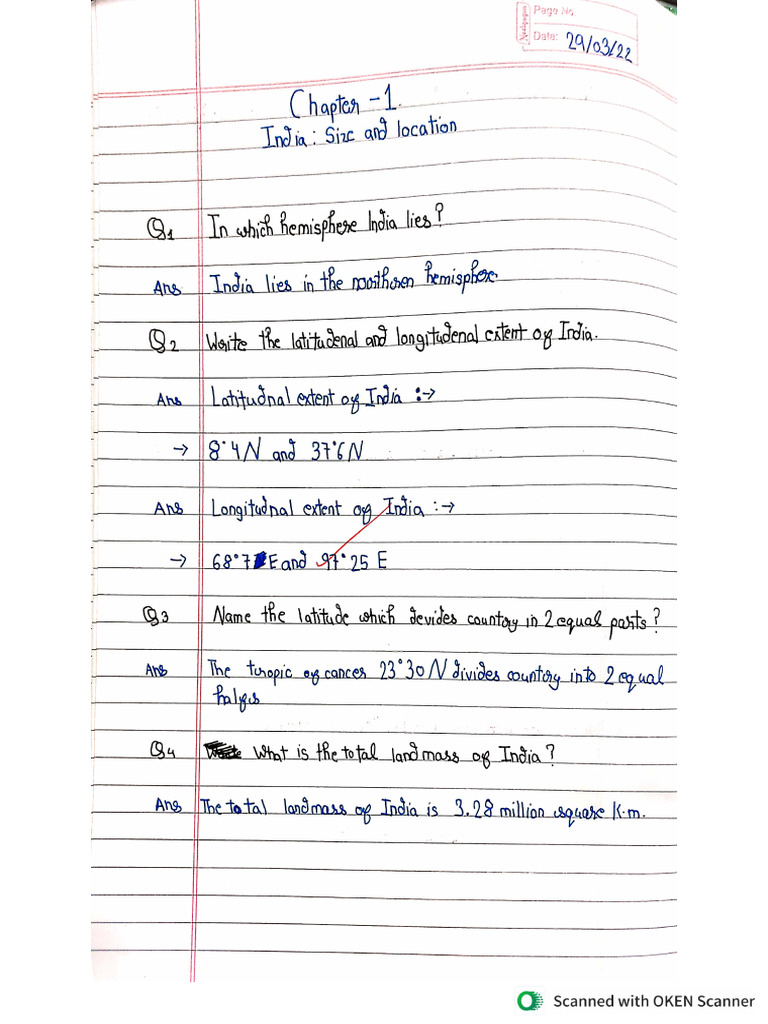 Page No.
Date: 29/03/22
Chapter - 1.
India: Size and location
Q1 In which hemisphere India lies?
Ans India lies in the northern hemisphere.
Q2 Write the latitudenal and longitudenal extent of India.
Ans Latitudnal extent of India :→
→ 8°4N and 37°6N
Ans Longitudnal extent of India :→
→ 68°7E and 97°25 E
Q3 Name the latitude which devides country in 2 equal parts?
Ans The tropic of cancer 23°30N divides country into 2 equal
halfes
Q4 What is the total landmass of India?
Ans The total landmass of India is 3.28 million square K.m.
Scanned with OKEN Scanner